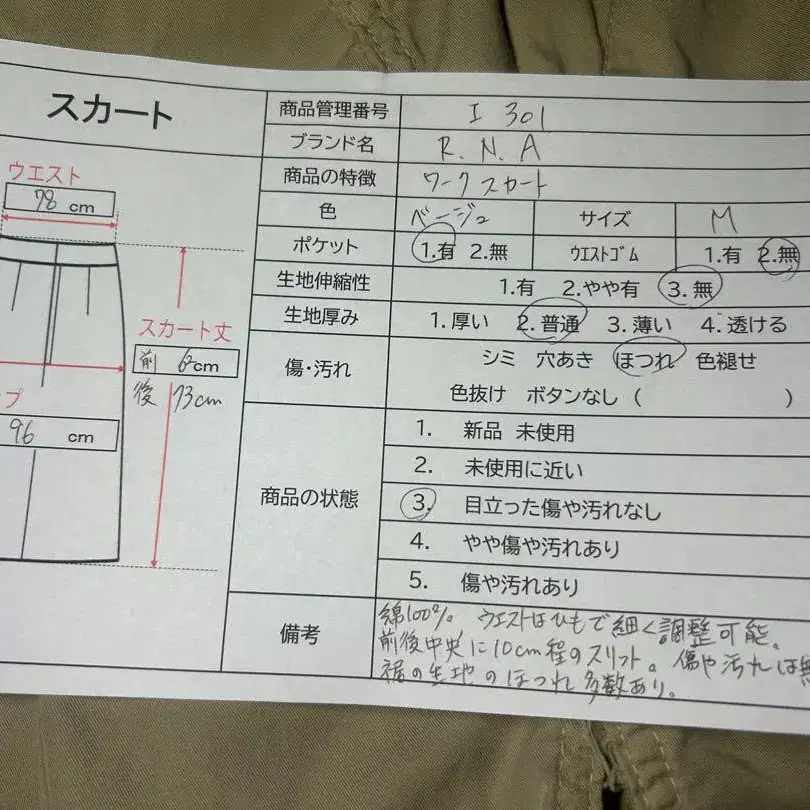 スカート
ウエスト
78 cm
スカート丈
前 cm
後 73cm
プ
96 cm
商品管理番号 I 301
ブランド名 R.N.A
商品の特徴 ワークスカート
色 ベージュ サイズ M
ポケット 1.有 2.無 ウエストゴム 1.有 2.無
生地伸縮性 1.有 2.やや有 3.無
生地厚み 1.厚い 2.普通 3.薄い 4.透ける
傷・汚れ シミ 穴あき ほつれ 色褪せ
色抜け ボタンなし ( )
商品の状態
1. 新品 未使用
2. 未使用に近い
3. 目立った傷や汚れなし
4. やや傷や汚れあり
5. 傷や汚れあり
備考
綿100%。 ウエストはひもで細く調整可能。
前後中央に10cm程のスリット。 傷や汚れは無
裾の生地のほつれ多数あり。